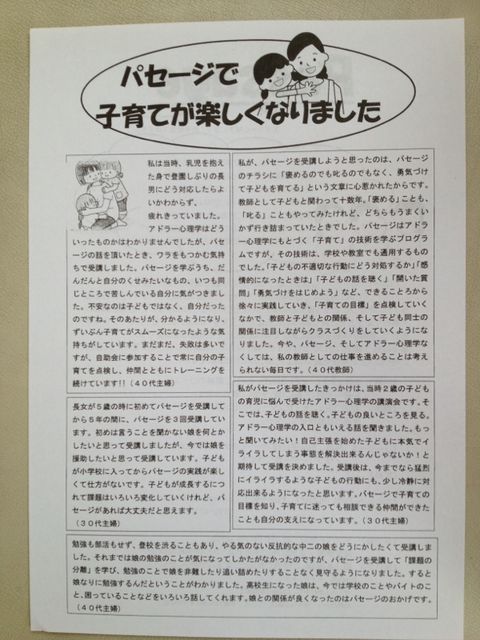 パセージで
子育てが楽しくなりました
私は当時、乳児を抱え
た身で登園しぶりの長
男にどう対応したらよ
いかわからず、
疲れきっていました。
アドラー心理学はどう
いったものかはわかりませんでしたが、パセ
ージの話を頂いたとき、ワラをもつかむ気持
ちで受講しました。パセージを学ぶうち、だ
んだんと自分のくせみたいなもの、いつも同
じところで苦しんでいる自分に気がつきまし
た。不安なのは子どもではなく、自分だった
のですね。そのあたりが、分かるようになり、
ずいぶん子育てがスムーズになったような気
持ちがしています。まだまだ、失敗は多いで
すが、自助会に参加することで常に自分の子
育てを点検し、仲間とともにトレーニングを
続けています!!（４０代主婦）
私が、パセージを受講しようと思ったのは、パセージ
のチラシに「褒めるのでも叱るのでもなく、勇気づけ
て子どもを育てる」という文章に心惹かれたからです。
教師として子どもと関わって十数年。「褒める」ことも、
「叱る」こともやってみたけれど、どちらもうまくい
かず行き詰まっていたときでした。パセージはアドラ
ー心理学にもとづく「子育て」の技術を学ぶプログラ
ムですが、その技術は、学校や教室でも通用するもの
でした。「子どもの不適切な行動にどう対処するか」「感
情的になったときは」「子どもの話を聴く」「開いた質
問」「勇気づけをはじめよう」など、できるところから
徐々に実践していき、「子育ての目標」を点検していく
なかで、教師と子どもとの関係、そして子ども同士の
関係に注目しながらクラスづくりをしていくようにな
りました。今や、パセージ、そしてアドラー心理学な
くしては、私の教師としての仕事を進めることは考え
られない毎日です。（４０代教師）
長女が５歳の時に初めてパセージを受講して
から５年の間に、パセージを３回受講してい
ます。初めは言うことを聞かない娘を何とか
したいと思って受講しましたが、今では娘を
援助したいと思って受講しています。子ども
が小学校に入ってからパセージの実践が楽し
くて仕方がないです。子どもが成長するにつ
れて課題はいろいろ変化していくけれど、パ
セージがあれば大丈夫だと思えます。
（３０代主婦）
私がパセージを受講したきっかけは、当時２歳の子ども
の育児に悩んで受けたアドラー心理学の講演会です。そ
こでは、子どもの話を聴く。子どもの良いところを見る。
アドラー心理学の入口ともいえる話を聞きました。もっ
と聞いてみたい！自己主張を始めた子どもに本気でイ
ライラしてしまう事態を解決出来るんじゃないか！と
期待して受講を決めました。受講後は、今までなら猛烈
にイライラするような子どもの行動にも、少し冷静に対
応出来るようになったと思います。パセージで子育ての
目標を知り、子育てに迷っても相談できる仲間ができた
ことも自分の支えになっています。（３０代主婦）
勉強も部活もせず、登校を渋ることもあり、やる気のない反抗的な中二の娘をどうにかしたくて受講しま
した。それまでは娘の勉強のことが気になってしかたがなかったのですが、パセージを受講して「課題の
分離」を学び、勉強のことで娘を非難したり追い詰めたりすることなく見守るようになりました。すると
娘なりに勉強するんだということがわかりました。高校生になった娘は、今では学校のことやバイトのこ
と、困っていることなどをいろいろ話してくれます。娘との関係が良くなったのはパセージのおかげです。
（４０代主婦）